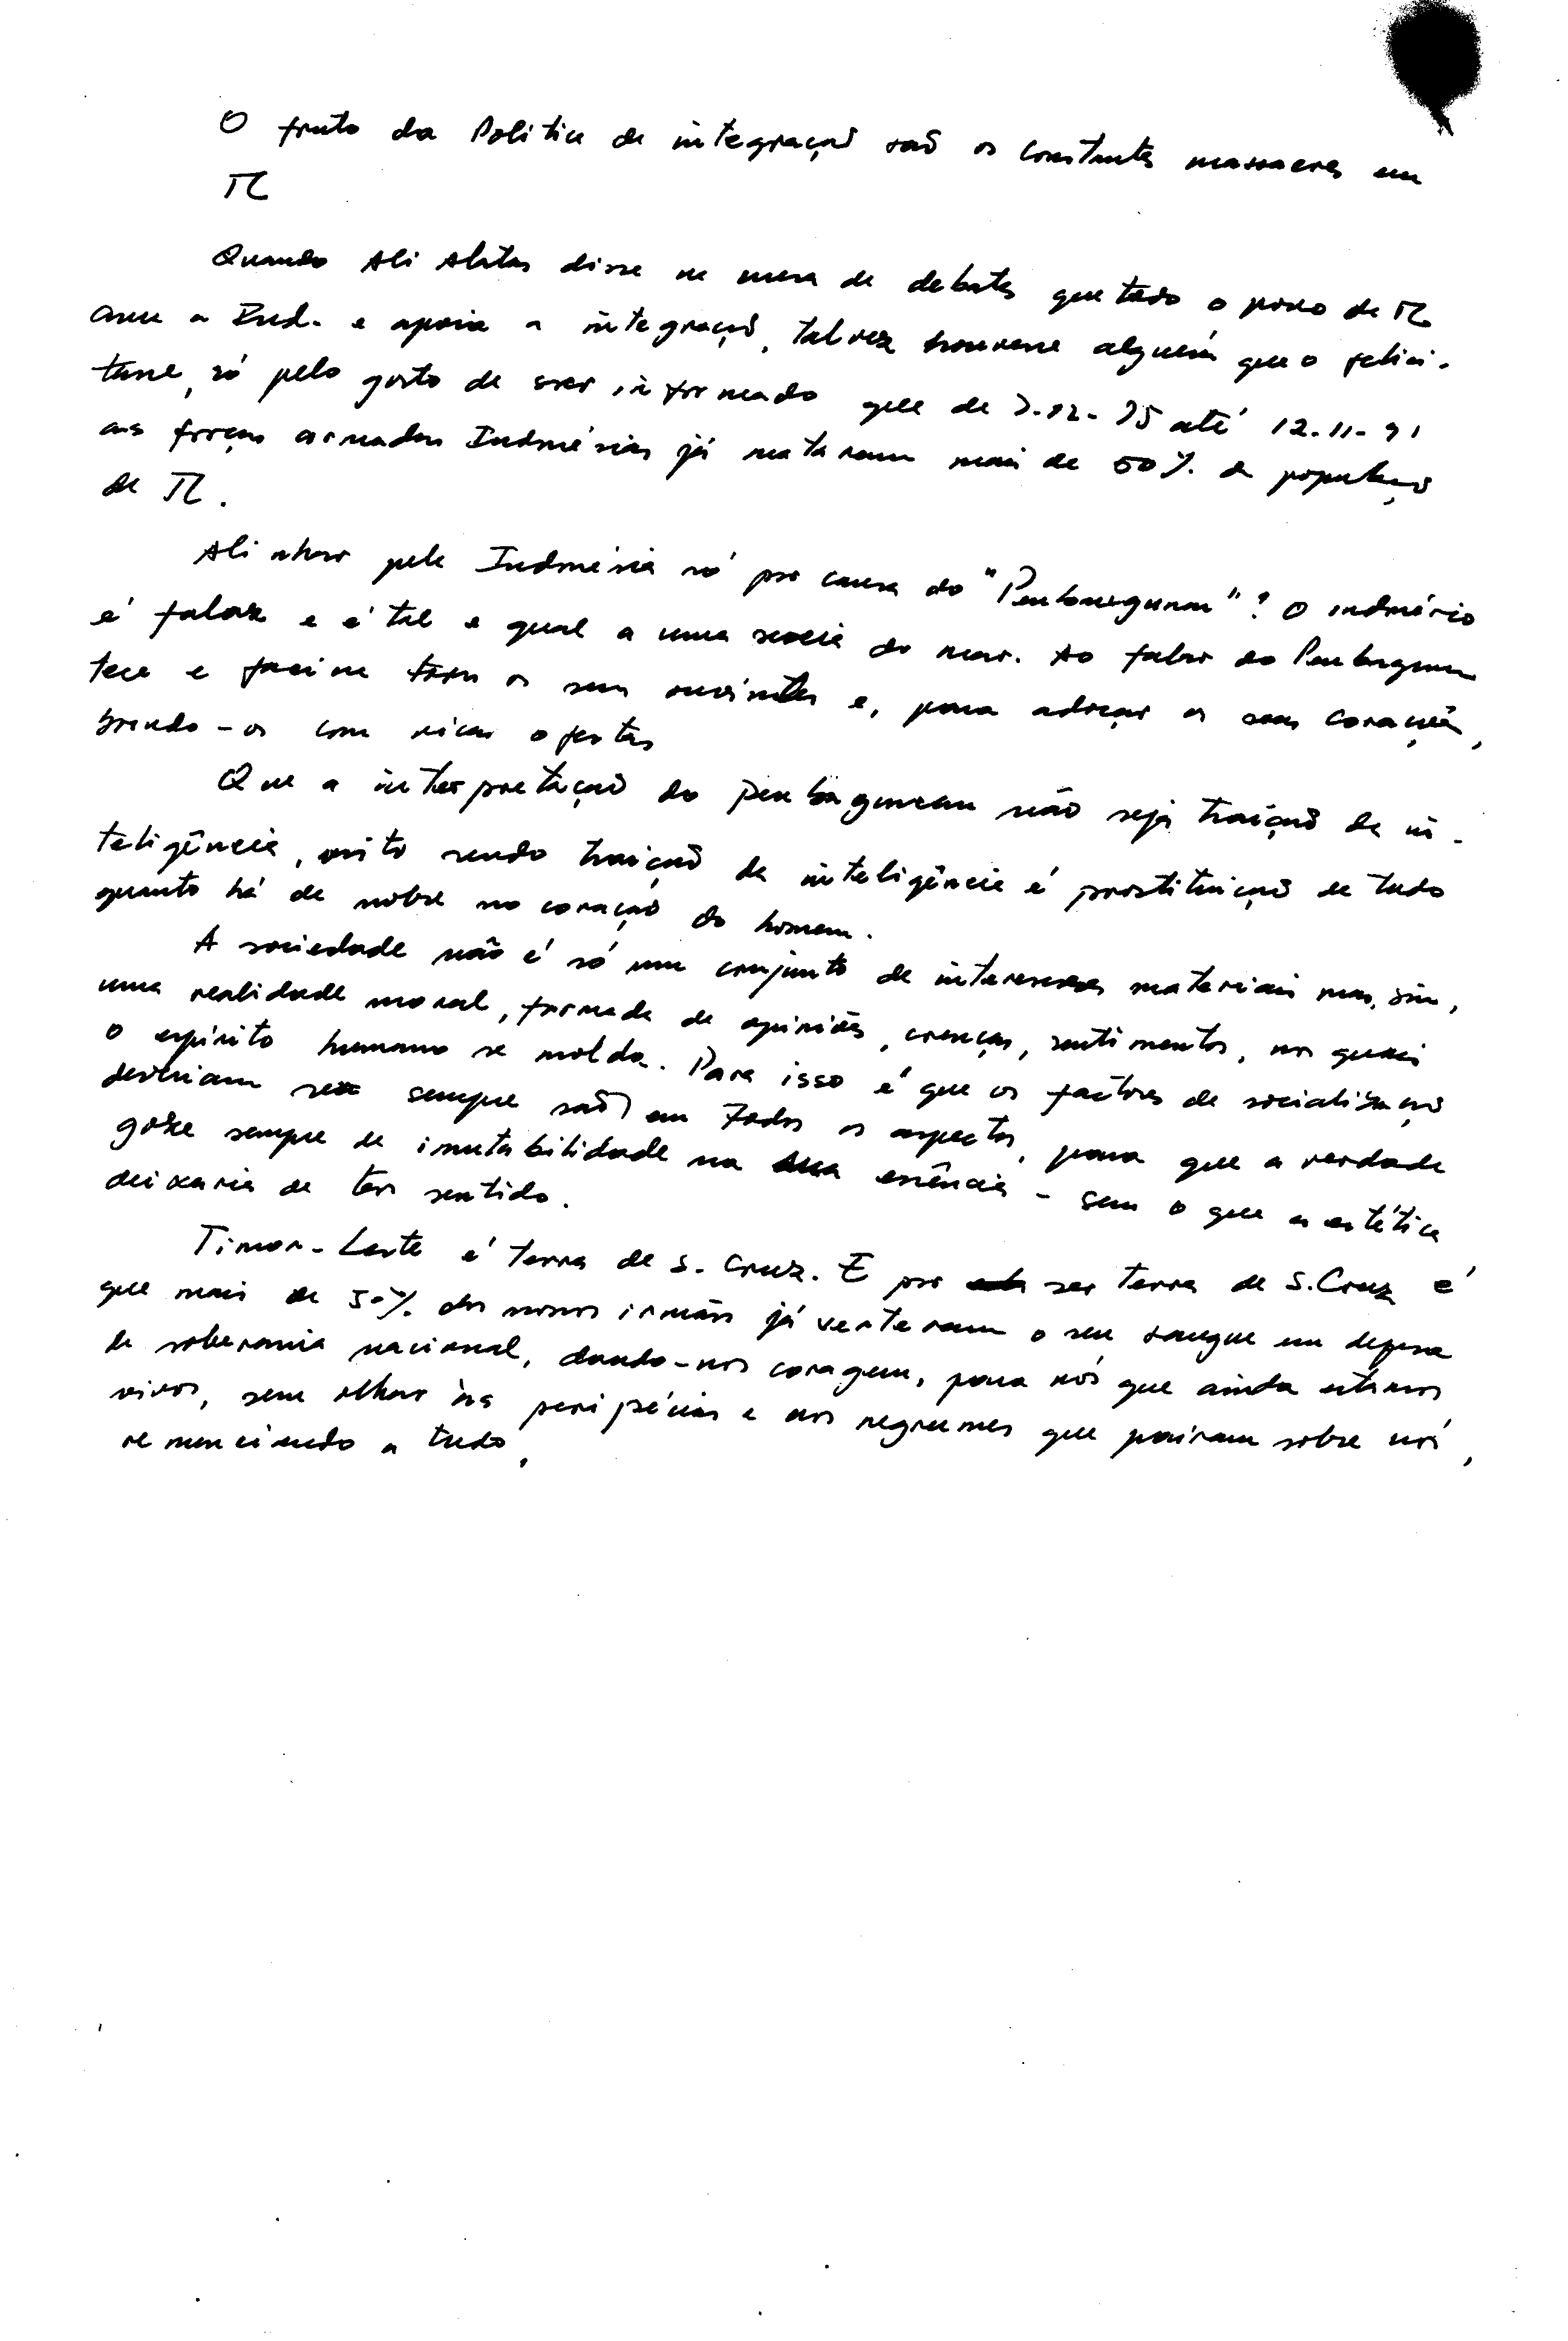 O fruto da Politica de integração são os constantes massacres em
TL
Quando Ali Alatas disse na mesa de debates que todo o povo de TL
ama a Ind. e apoia a integração, talvez houvesse alguém que o felici-
tasse, só pelo gosto de ser informado que de 7-12-75 até 12-11-91
as forças armadas Indonésias já mataram mais de 50% da população
de TL.
Alinhar pela Indonésia só por causa do "Pembangunan"? O indonésio
é falaz e é tal e qual a uma sereia do mar. Ao falar do Pembangunan
tece e fascina os seus ouvintes e, para adoçar os seus corações,
brinda-os com ricas ofertas
Que a interpretação do Pembangunan não seja traição da in-
teligência, visto sendo traição da inteligência é prostituição de tudo
quanto há de nobre no coração do homem.
A sociedade não é só um conjunto de interesses materiais mas, sim,
uma realidade moral, formada de opiniões, crenças, sentimentos, nos quais
o espírito humano se molda. Para isso é que os factores de socialização
deveriam ser sempre sãos em todos os aspectos, para que a verdade
goze sempre de imutabilidade na sua essência - sem o que a estética
deixaria de ter sentido.
Timor-Leste é terra de S. Cruz. E por ser terra de S. Cruz é
que mais de 50% dos nossos irmãos já verteram o seu sangue em defesa
da soberania nacional, dando-nos coragem, para nós que ainda estamos
vivos, sem olhar às peripécias e aos negrumes que pairam sobre nós,
renunciando a tudo,